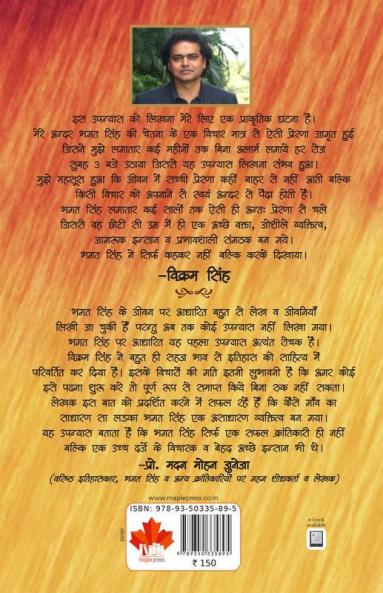 इस उपन्यास को लिखना मेरे लिए एक प्राकृतिक घटना है।
मेरे अन्दर भगत सिंह की चेतना के एक विचार मात्र से ऐसी प्रेरणा जागृत हुई
जिसने मुझे लगातार कई महीनों तक बिना अलार्म लगाये हर रोज
सुबह 3 बजे उठाया जिससे यह उपन्यास लिखना संभव हुआ।
मुझे महसूस हुआ कि जीवन में सच्ची प्रेरणा कहीं बाहर से नहीं आती बल्कि
किसी विचार को अपनाने से स्वयं अन्दर से पैदा होती है।
भगत सिंह लगातार कई सालों तक ऐसी ही अन्तः प्रेरणा से चले
जिससे वह छोटी सी उम्र में ही एक अच्छे वक्ता, जोशीले व्यक्तित्व,
जागरूक इन्सान व प्रभावशाली संगठक बन गये।
भगत सिंह ने सिर्फ कहकर नहीं बल्कि करके दिखाया।
–विक्रम सिंह
भगत सिंह के जीवन पर आधारित बहुत से लेख व जीवनियाँ
लिखी जा चुकी हैं परन्तु अब तक कोई उपन्यास नहीं लिखा गया।
भगत सिंह पर आधारित यह पहला उपन्यास अत्यंत रोचक है।
विक्रम सिंह ने बहुत ही सहज भाव से इतिहास को साहित्य में
परिवर्तित कर दिया है। इसके विचारों की गति इतनी लुभावनी है कि अगर कोई
इसे पढ़ना शुरू करे तो पूर्ण रूप से समाप्त किये बिना रुक नहीं सकता।
लेखक इस बात को प्रदर्शित करने में सफल रहे हैं कि कैसे गाँव का
साधारण सा लड़का भगत सिंह एक असाधारण व्यक्तित्व बन गया।
यह उपन्यास बताता है कि भगत सिंह सिर्फ एक सफल क्रांतिकारी ही नहीं
बल्कि एक उच्च दर्जे के विचारक व बेहद अच्छे इन्सान भी थे।
–प्रो. मदन मोहन जुनेजा
(वरिष्ठ इतिहासकार, भगत सिंह व अन्य क्रांतिकारियों पर गहन शोधकर्ता व लेखक)
www.maplepress.co.in
ISBN : 978-93-50335-89-5
maple press
9 789350 335895
₹ 150
e-book
available